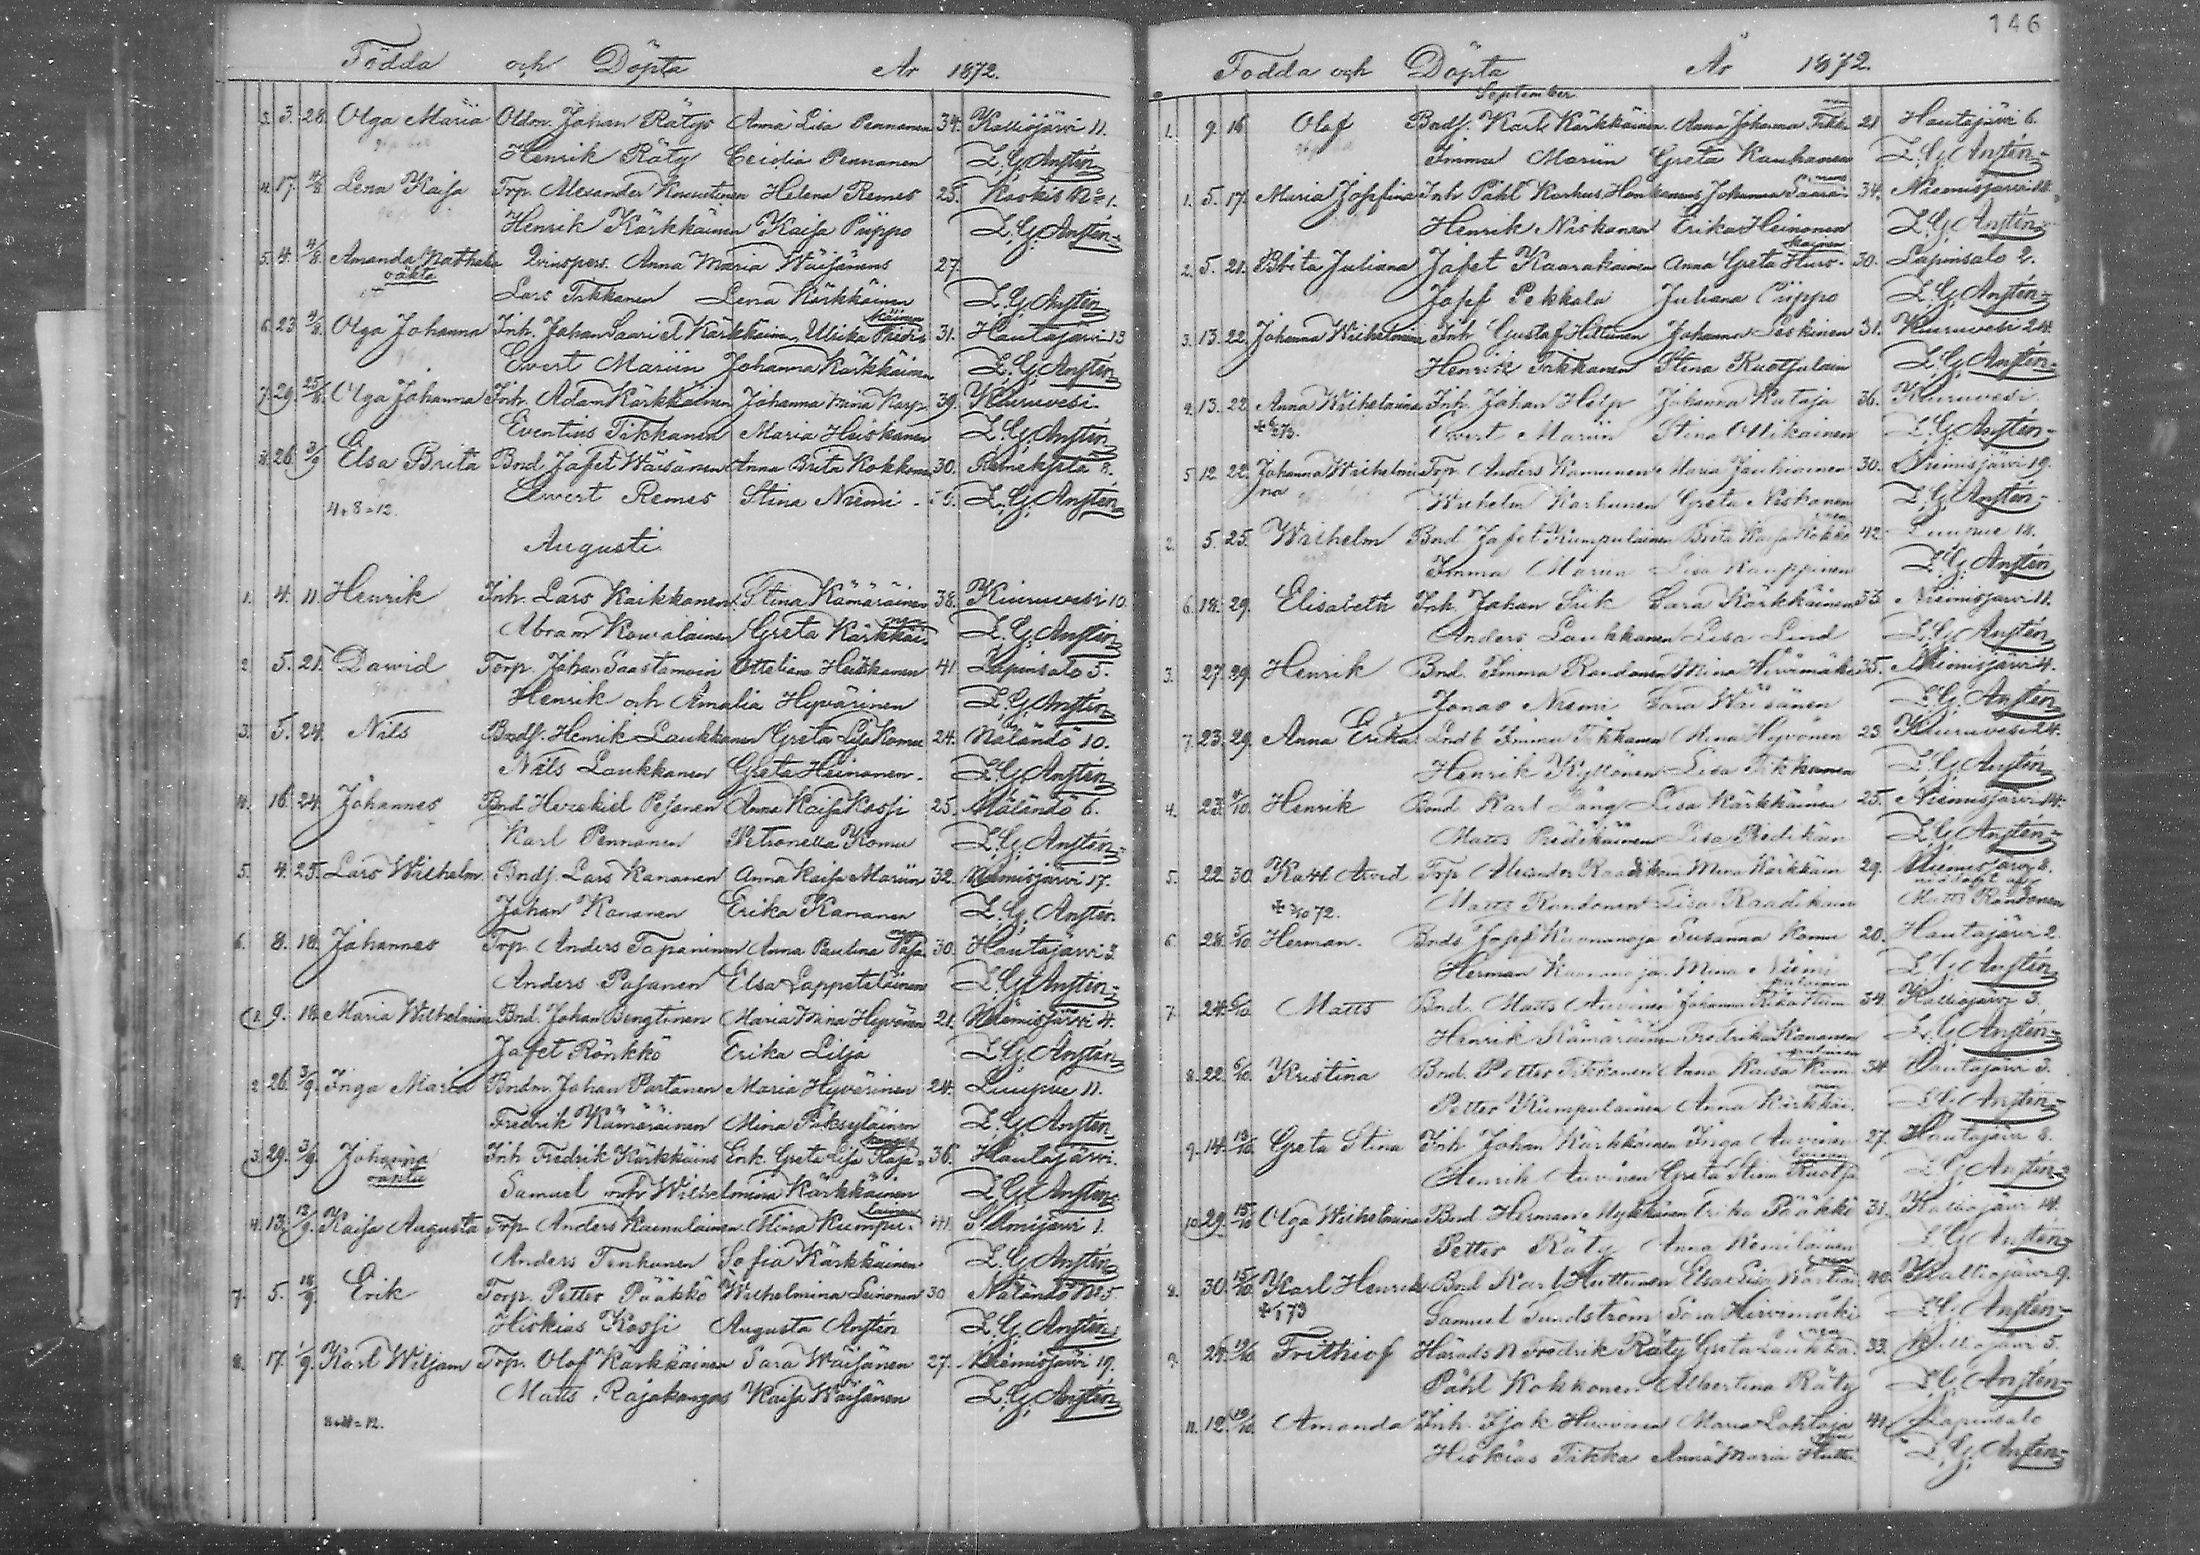 Födda och Döpta År 1872.
3. 3. 28. Olga Maria Oldm. Johan Rätys Anna Lisa Pennanen 34. Kalliojärvi 11.
Henrik Räty Pennanen L. G. Anstén
4. 17. 4/8 Lena Kaisa Trp. Alexander Helena Remes 25. Koskis No 1.
Henrik Kärkkäinen Kaisa Piippo L. G. Anstén
5. 4. 4/8 Amanda Qvinspers. Anna Maria Wäisänens 27.
oäkta
Lars Tikkanen Lena Kärkkäinen L. G. Anstén
6. 23. 4/8 Olga Johanna Inh. Johan Kärkkäinen, Ulrika 31. Hautajärvi 13
Evert Mariin Johanna Kärkkäinen L. G. Anstén
7. 29. 25/8 Olga Johanna Inh. Adam Kärkkäinen Johanna Mina Karp. 39. Kiuruvesi.
Eventius Tikkanen Maria Heiskanen L. G. Anstén
8. 26. 3/9 Elsa Brita Bnd. Jafet Wäisänen Anna Brita Kokkonen 30. 8.
Ewert Remes Stina Niemi L. G. Anstén
4+8=12.
Augusti
1. 4. 11. Henrik Inh. Lars Kaikkanen Stina Kämäräinen 38. Kiuruvesi 10.
Abram Kowalainen Greta Kärkkäinen L. G. Anstén
2. 5. 21. Dawid Torp. Johan Saastamoin Heikkanen 41. Lapinsalo 5.
Henrik och Amalia Hyvärinen L. G. Anstén
3. 5. 24. Nils Bndf. Henrik Laukkanen Greta Lisa Komu 24. Näländö 10.
Nils Laukkanen Greta Heinonen. L. G. Anstén
4. 16. 24. Johannes Bnd. Hezekiel Pesonen Anna Kaisa Kossi 25. Näländö 6.
Karl Pennanen Petronella Komu L. G. Anstén
5. 4. 25. Lars Wilhelm Bndf. Lars Kananen Anna Kaisa Mariin 32. Niemisjärvi 17.
Johan Kananen Erika Kananen L. G. Anstén
6. 8. 18. Johannes Trp. Anders Tapaninen Anna Paulina 30. Hautajärvi 3.
Anders Pasanen Elsa Lappeteläinen L. G. Anstén
1. 9. 18. Maria Wilhelmina Bnd. Johan Bengtinen Maria Mina Hyvönen 21. Niemisjärvi 4.
Jafet Rönkkö Erika Lilja L. G. Anstén
2. 26. 3/9. Inga Maria Bndm. Johan Partanen Maria Hyvärinen 24. Luupue 11.
Fredrik Kämäräinen Mina L. G. Anstén
3. 29. 3/9. Johanna Inh. Fredrik Kärkkäins Enk. Greta Lisa Raja-kangas 36. Hautajärvi.
oäkta
Samuel och Wilhelmina Kärkkäinen L. G. Anstén
4. 13. 13/9. Kaisa Augusta Trp. Anders Kainulainen Mina Kumpu-lainen 41. 1.
Anders Tenhunen Sofia Kärkkäinen L. G. Anstén
7. 5. 18/9. Erik Torp. Petter Pääkkö Wilhelmina Leinonen 30 Näländö No 5
Hiskias Kossi Augusta Anstén L. G. Anstén
8. 17. 1/9. Karl Wiljam Trp. Olof Kärkkäinen Sara Wäisänen 27. Niemisjärvi 19.
Matts Rajakangas Kaisa Wäisänen L. G. Anstén
8+4=12.
146
Födda och Döpta År 1872.
September.
1. 9. 16 Olof Bndf. Karl Kärkkäinen Anna Johanna 21 Hautajärvi 6.
Imma Mariin Greta Kauhanen L. G. Anstén
1. 5. 17. Maria Josefina Inh. Påhl Korhus Johanna 34. Niemisjärvi 18.
Henrik Niskanen Erika Heinonen L. G. Anstén
2. 5. 21. Brita Juliana Jafet Kaarakainen Anna Greta 30. Lapinsalo 2.
Josef Pekkala Juliana Piippo L. G. Anstén
3. 13. 22. Johanna Wilhelmina Inh. Gustaf Hiltunen Johanna Leskinen 31. Kiuruvesi 24.
Henrik Tikkanen Stina Ruotsalain L. G. Anstén
4. 13. 22. Anna Wilhelmina Inh. Johan Help Johanna Kataja 36. Kiuruvesi.
Evert Mariin Stina Ollikainen L. G. Anstén
5. 12. 22. Johanna Wilhelmina Trp. Anders Maria Jauhiainen 30. Niemisjärvi 19.
Wilhelm Karhunen Greta Niskanen L. G. Anstén
2. 5. 25. Wilhelm Bnd. Jafet Kumpulainen Brita Kaisa Kokko-nen 42. Luupue 18.
Imma Mariin Lisa Kauppinen L. G. Anstén
6. 18. 29. Elisabeth Inh. Johan Sara Kärkkäinen 33. Niemisjärvi 11.
Anders Laukkanen Lisa Lind L. G. Anstén
3. 27. 29. Henrik Bnd. Imma Rondonen Mina Hirvimäki 35. Niemisjärvi 4.
Jonas Niemi Sara Wäisänen L. G. Anstén
7. 23. 29. Anna Erika Imma Tikkanen Mina Hyvönen 23. Kiuruvesi 24.
Henrik Kyllönen Lisa Tikkanen L. G. Anstén
4. 23. 4/10. Henrik Bnd Karl Lång Lisa Kärkkäinen 25. Niemisjärvi 14.
Matts Lisa L. G. Anstén
5. 22. 30. Karl Arvid Trp. Alexander Mina Kärkkäin 29. Niemisjärvi 8.
nöddöpt af
+ 3/10 72. Matts Rondonen Lisa Raadikain Matts Rondonen
6. 28. 5/10 Herman. Bnds Josef Kuonanoja Susanna Komu 20. Hautajärvi 2.
Herman Kuonanoja Mina Niemi L. G. Anstén
7. 24. 6/10. Matts Bnd. Matts Auvinen Johanna 34. Kalliojärvi 3.
Henrik Kämäräinen Fredrika Kananen L. G. Anstén
8. 22. 6/10. Kristina Bnd. Petter Tikkanen Anna Kaisa Kum-pulainen 34. Hautajärvi 3.
Petter Kumpulainen Anna Kärkkäi-nen L. G. Anstén
9. 14. 13/10. Greta Stina Inh. Johan Kärkkäinen Inga Auvinen 27. Hautajärvi 8.
Henrik Auvinen Greta Stina Ruotsa-lainen L. G. Anstén
10. 29. 15/10 Olga Wilhelmina Bnd Herman Mykkänen Erika Pääkkö 31. Kalliojärvi 14.
Petter Räty Anna L. G. Anstén
8. 30. 15/10. Karl Henrik Bnd Karl Huttunen Elsa Lisa 40. Kalliojärvi 9.
Samuel Sundström Sara Hirvimäki L. G. Anstén
9. 24. Frithiof Härads N Fredrik Räty Greta Laukka-nen 33. Kalliojärvi 5.
Påhl Kokkonen Albertina Räty L. G. Anstén
11. 12. Amanda Inh. Isak Maria Lohtaja 41. Lapinsalo
Hiskias Tikka Anna Maria L. G. Anstén